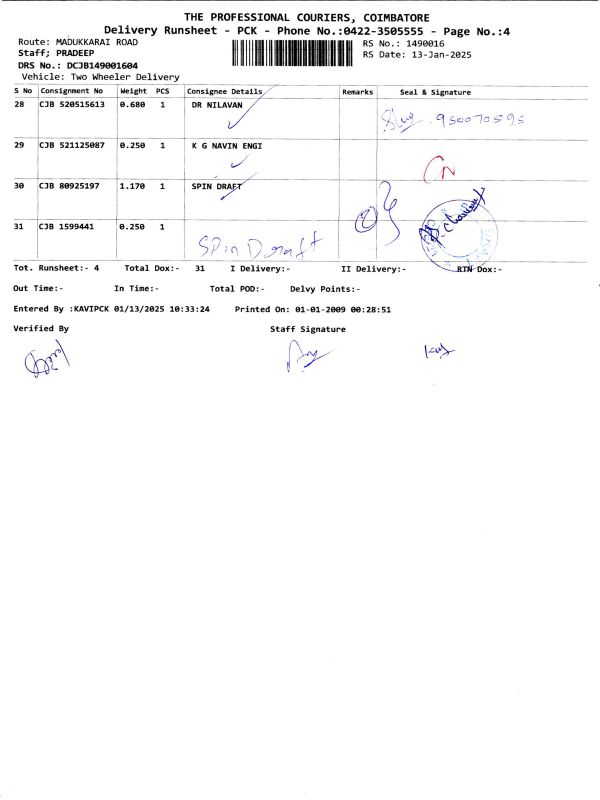 THE PROFESSIONAL COURIERS, COIMBATORE
Delivery Runsheet - PCK - Phone No.:0422-3505555 - Page No.:4
Route: MADUKKARAI ROAD RS No.: 1490016
Staff; PRADEEP RS Date: 13-Jan-2025
DRS No.: DCJB149001604
Vehicle: Two Wheeler Delivery
S No Consignment No Weight PCS Consignee Details Remarks Seal & Signature
28 CJB 520515613 0.680 1 DR NILAVAN
29 CJB 521125087 0.250 1 K G NAVIN ENGI
30 CJB 80925197 1.170 1 SPIN DRAFT
31 CJB 1599441 0.250 1
Spin Draft
Tot. Runsheet:- 4 Total Dox:- 31 I Delivery:- II Delivery:- RTN Dox:-
Out Time:- In Time:- Total POD:- Delvy Points:-
Entered By :KAVIPCK 01/13/2025 10:33:24 Printed On: 01-01-2009 00:28:51
Verified By Staff Signature